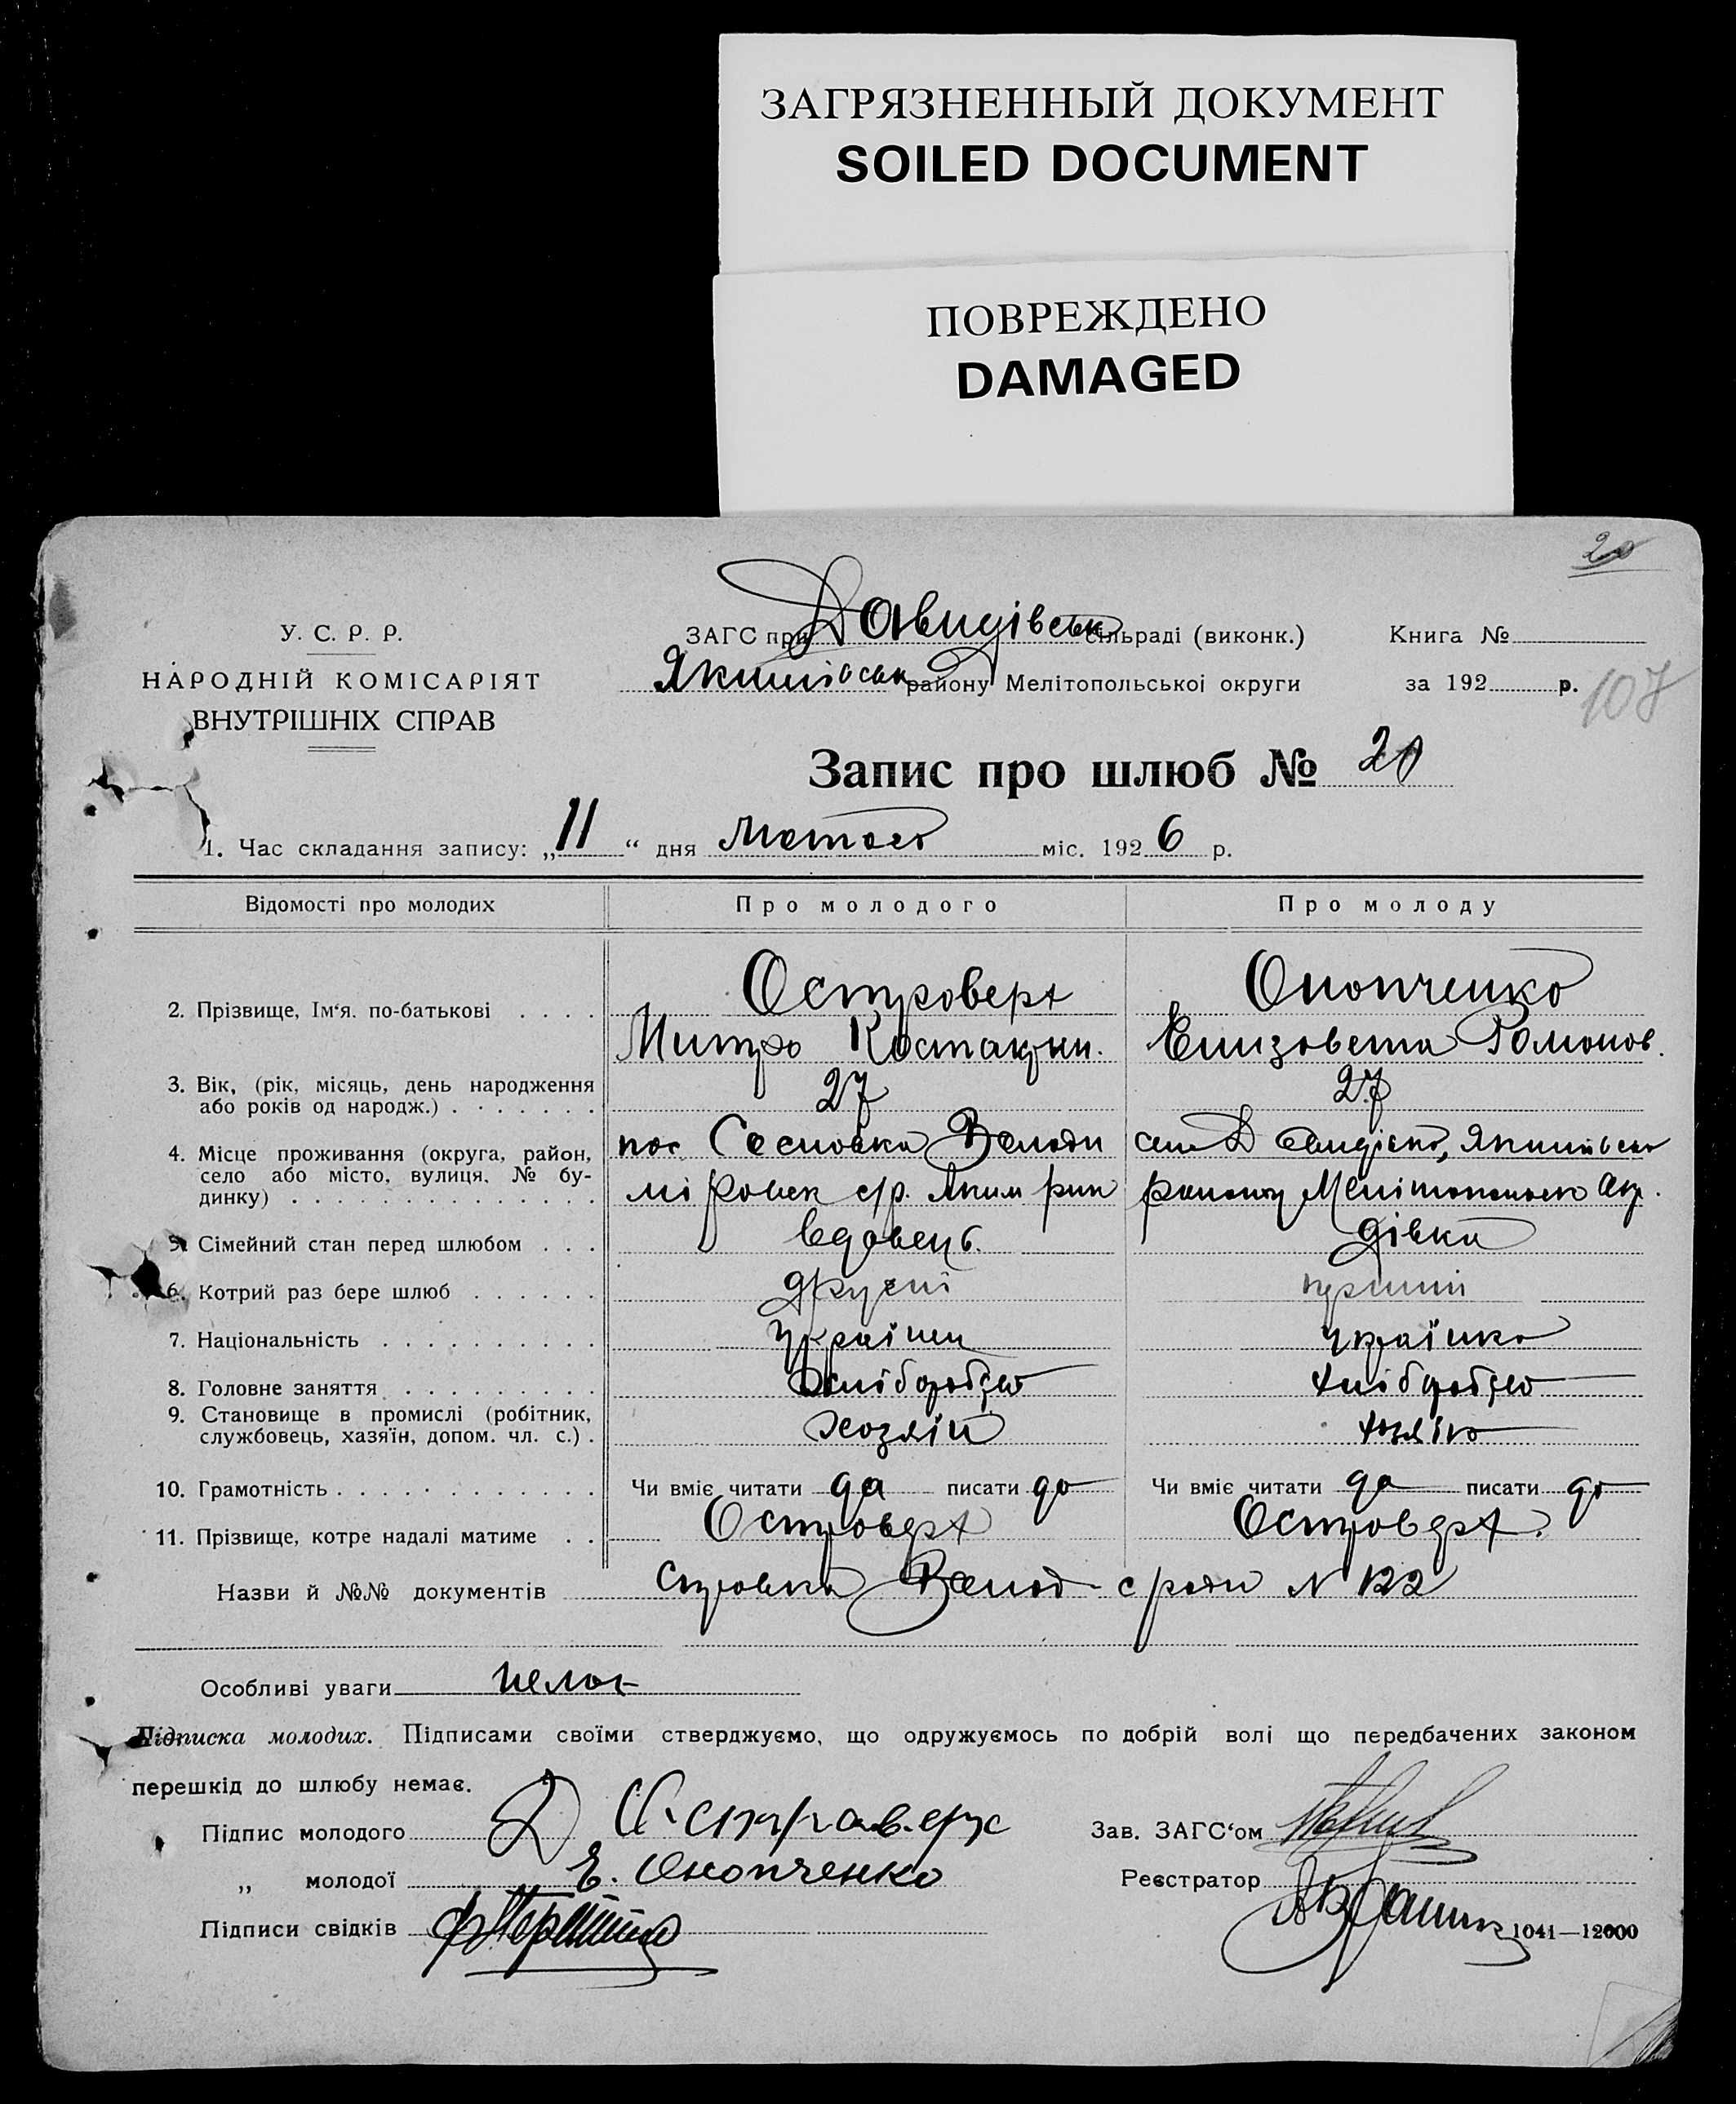 ЗАГРЯЗНЕННЫЙ ДОКУМЕНТ
SOILED DOCUMENT
ПОВРЕЖДЕНО
DAMAGED
20
У. С. Р. Р.
НАРОДНІЙ КОМІСАРІЯТ
ВНУТРІШНІХ СПРАВ
ЗАГС при Давидівськ сільраді (виконк.)
Книга №
Якимівськ району Мелітопольської округи
за 192 р.
107
Запис про шлюб № 20
1. Час складання запису: „11“ дня лютого міс. 1926 р.
Відомості про молодих
Про молодого
Про молоду
2. Прізвище, Ім‘я. по-батькові
Островерх
Митро Костантин.
Онопченко
Елизовета Романов.
3. Вік, (рік, місяць, день народження
або років од народж.)
27
27
4. Місце проживання (округа, район,
село або місто, вулиця, № бу-
динку)
пос Сосновка Володи
міровск с/р. Яким рик
село Давидівка, Якимівсько
району Мелітопольск окр.
5. Сімейний стан перед шлюбом
вдовець.
дівка
6. Котрий раз бере шлюб
другий
перший
7. Національність
українец
українка
8. Головне заняття
хліборобство
хліборобство
9. Становище в промислі (робітник,
службовець, хазяїн, допом. чл. с.)
хозяїн
10. Грамотність
Чи вміє читати да писати да
Чи вміє читати да писати да
11. Прізвище, котре надалі матиме
Островерх
Островерх.
Назви й №№ документів Справка Волод. с ради N 122
Особливі уваги немає
Підписка молодих. Підписами своїми стверджуємо, що одружуємось по добрій волі що передбачених законом
перешкід до шлюбу немає.
Підпис молодого Д Астраверх
Зав. ЗАГС‘ом
„ молодої Е. Онопченко
Реєстратор
Підписи свідків
1041—12000